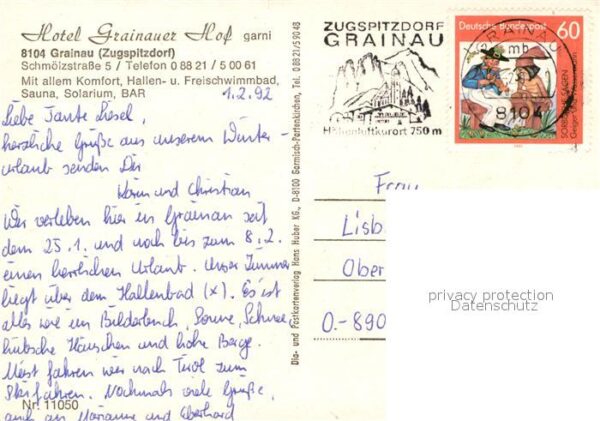 Hotel Grainauer Hof garni
8104 Grainau (Zugspitzdorf)
Schmölzstraße 5 / Telefon 0 88 21 / 5 00 61
Mit allem Komfort, Hallen- u. Freischwimmbad,
Sauna, Solarium, BAR
1.2.92
Liebe Tante Liesel,
herzliche Grüße aus unserem Winter-
urlaub senden Dir
Karin und Christian
Wir verleben hier in Grainau seit
dem 25.1. und noch bis zum 8.2.
einen herrlichen Urlaub. Unser Zimmer
liegt über dem Hallenbad (x). Es ist
alles wie im Bilderbuch, Sonne, Schnee
hübsche Häuschen und hohe Berge.
Meist fahren wir nach Tirol zum
Skifahren. Nochmals viele Grüße,
auch an Marianne und Eberhard
Nr. 11050
Dia- und Postkartenverlag Hans Huber KG., D-8100 Garmisch-Partenkirchen, Tel. 0 88 21/5 90 48
ZUGSPITZDORF
GRAINAU
Höhenluftkurort 750 m
Deutsche Bundespost
60
GRAINAU
8104
Frau
Lisb
Ober
O.-890
privacy protection
Datenschutz